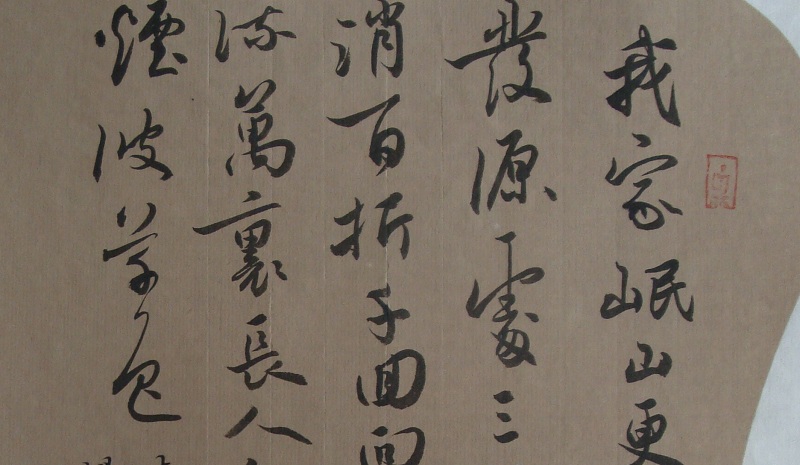 我家岷山更
發源處三
消百折千回向
流萬裏長人
煙波草色